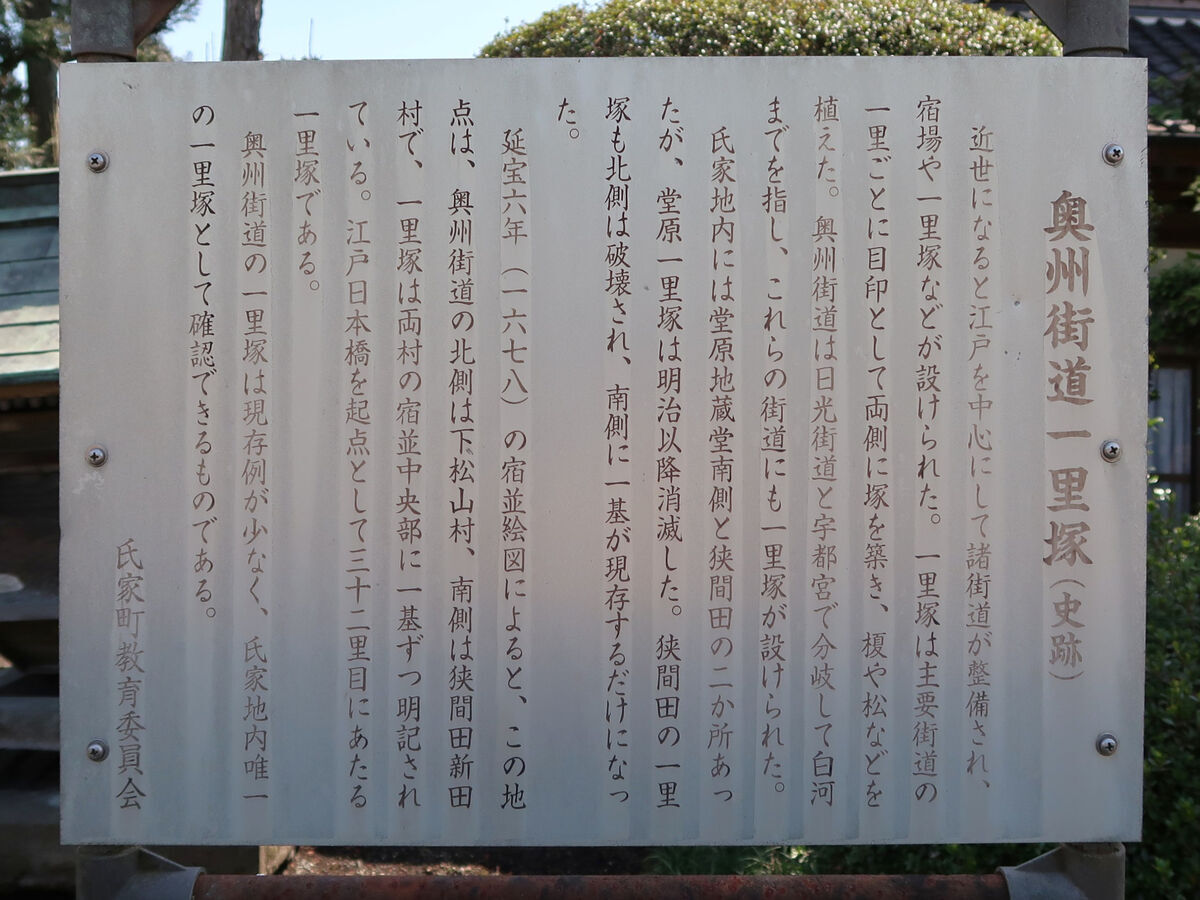 奥州街道一里塚（史跡）
近世になると江戸を中心にして諸街道が整備され、
宿場や一里塚などが設けられた。一里塚は主要街道の
一里ごとに目印として両側に塚を築き、榎や松などを
植えた。奥州街道は日光街道と宇都宮で分岐して白河
までを指し、これらの街道にも一里塚が設けられた。
氏家地内には堂原地蔵堂南側と狭間田の二か所あっ
たが、堂原一里塚は明治以降消滅した。狭間田の一里
塚も北側は破壊され、南側に一基が現存するだけになっ
た。
延宝六年（一六七八）の宿並絵図によると、この地
点は、奥州街道の北側は下松山村、南側は狭間田新田
村で、一里塚は両村の宿並中央部に一基ずつ明記され
ている。江戸日本橋を起点として三十二里目にあたる
一里塚である。
奥州街道の一里塚は現存例が少なく、氏家地内唯一
の一里塚として確認できるものである。
氏家町教育委員会